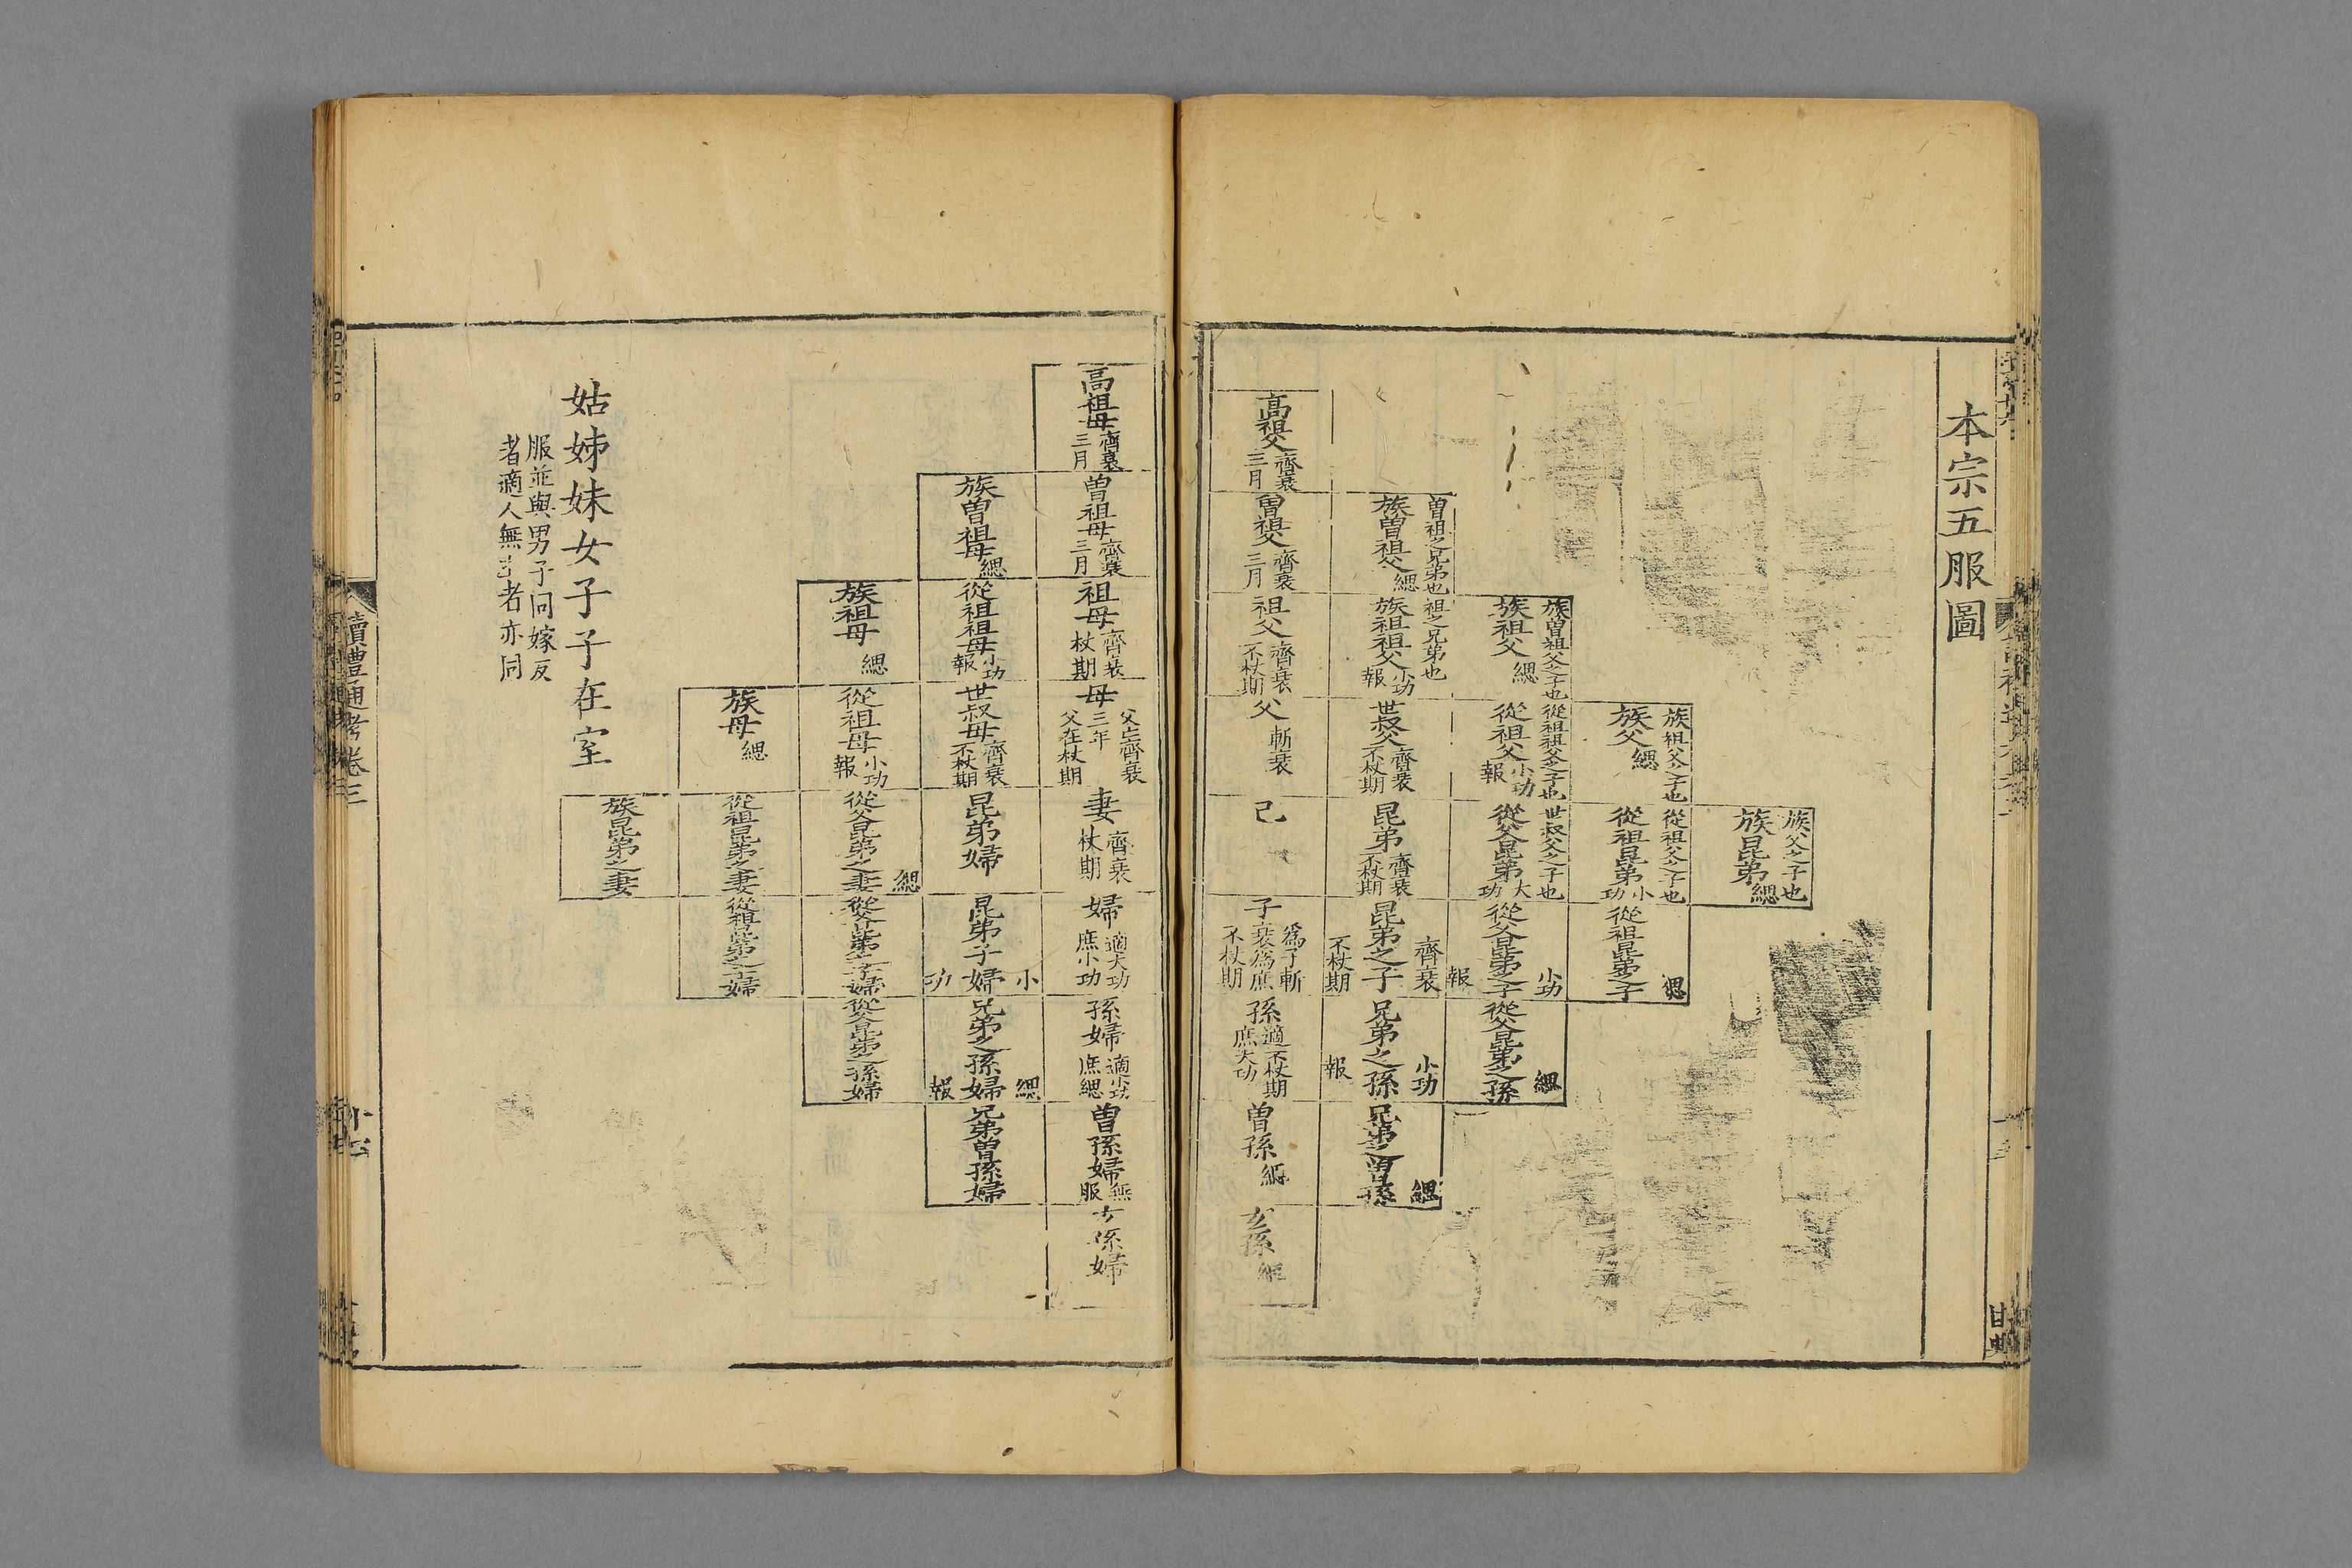 本宗五服圖
族父之子也
族昆弟緦
族祖父之子也
族父緦
從祖父之子也
從祖昆弟小功
從祖昆弟之子緦
族曾祖父之子也
族祖父緦
從祖祖父之子也
從祖父小功報
世叔父之子也
從父昆弟大功
從父昆弟之子小功報
從父昆弟之孫緦
曾祖之兄弟也
族曾祖父緦
祖之兄弟也
族祖祖父小功報
世叔父齊衰不杖期
昆弟齊衰不杖期
昆弟之子齊衰不杖期
兄弟之孫小功報
兄弟之曾孫緦
高祖父齊衰三月
曾祖父齊衰三月
祖父齊衰不杖期
父斬衰
己
子為子斬衰為庶不杖期
孫適不杖期庶大功
曾孫緦
玄孫緦
高祖母齊衰三月
曾祖母齊衰三月
祖母齊衰杖期
母父亡齊衰三年父在杖期
妻齊衰杖期
婦適大功庶小功
孫婦適小功庶緦
曾孫婦無服
玄孫婦
族曾祖母緦
從祖祖母小功報
世叔母齊衰不杖期
昆弟婦
昆弟子婦小功
兄弟之孫婦緦報
兄弟曾孫婦
族祖母緦
從祖母小功報
從父昆弟之妻緦
從父昆弟之子婦
從父昆弟之孫婦
族母緦
從祖昆弟之妻
從祖昆弟之子婦
族昆弟之妻
姑姊妹女子子在室
服並與男子同嫁反
者適人無主者亦同
讀禮通考卷三